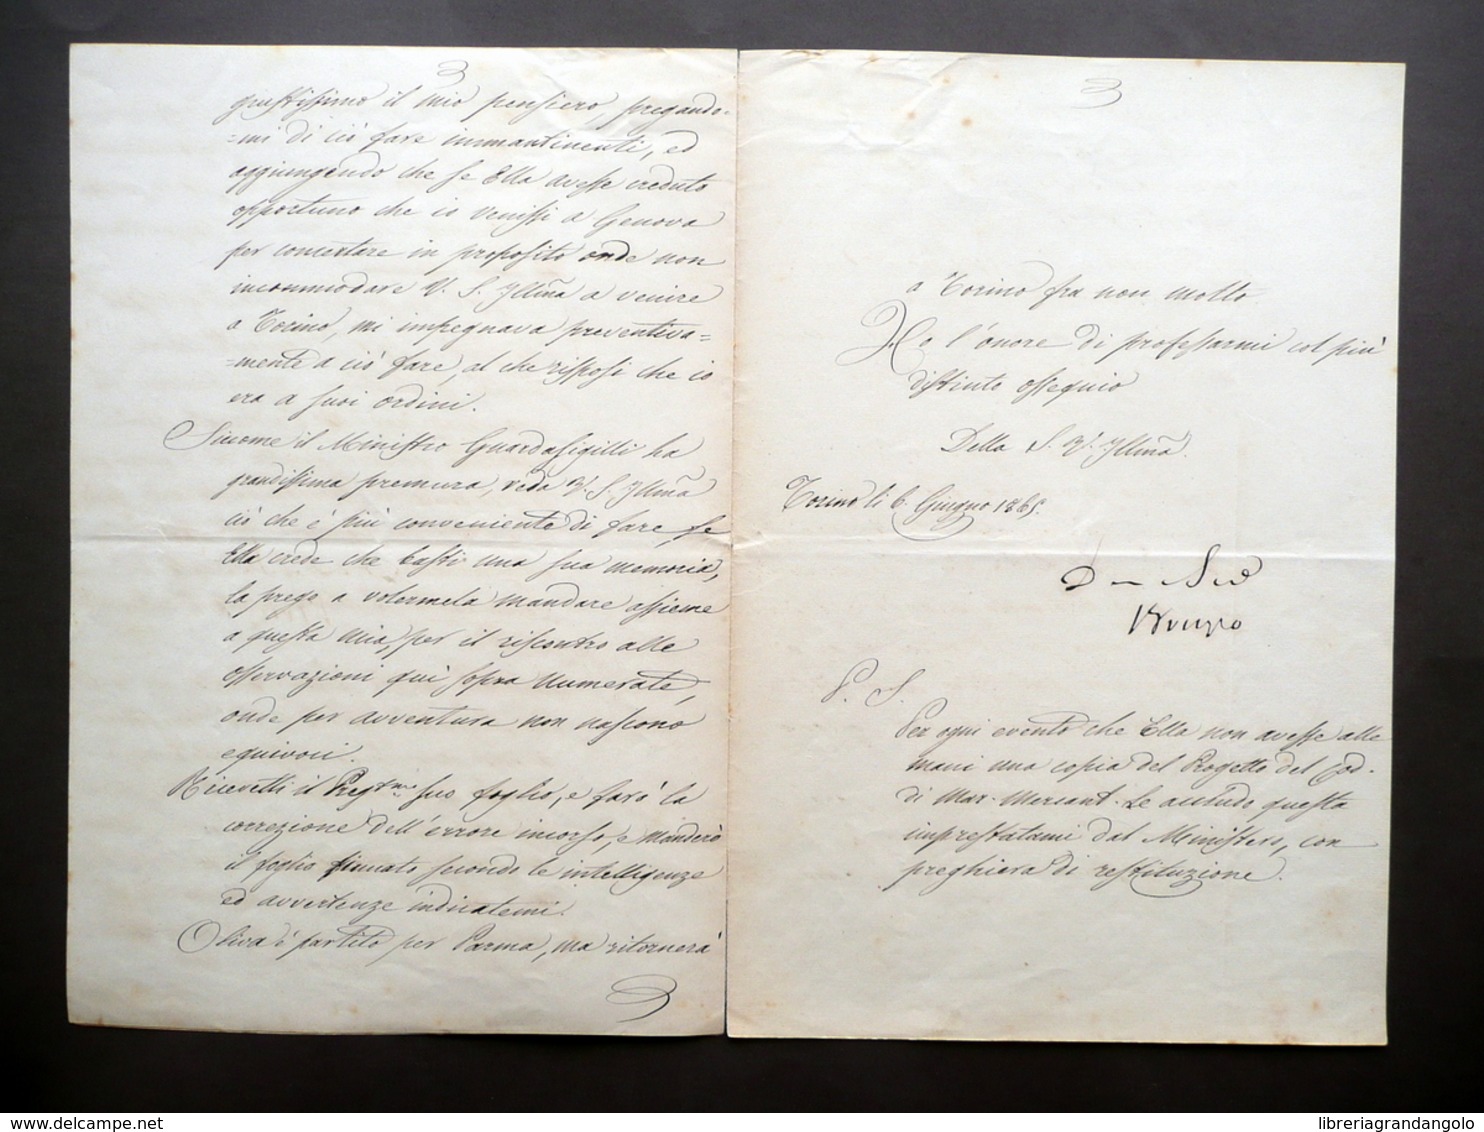 giustissimo il mio pensiero, pregando=
=mi di ciò fare immantinenti, ed
aggiungendo che se Ella avesse creduto
opportuno che io venissi a Genova
per concertare in proposito onde non
incommodare V. S. Illma a venire
a Torino, mi impegnava preventiva=
=mente a ciò fare, al che risposi che io
era a suoi ordini.
Siccome il Ministro Guardasigilli ha
grandissima premura, veda V. S. Illma
ciò che è più conveniente di fare se
Ella crede che basti una sua memoria,
la prego a volermela mandare assieme
a questa mia, per il riscontro alle
osservazioni quì sopra numerate,
onde per avventura non nascono
equivoci.
Ricevetti il Pregtmo suo foglio, e farò la
correzione dell'errore incorso, e manderò
il foglio firmato secondo le intelligenze
ed avvertenze indicatemi.
Oliva è partito per Parma, ma ritornerà
a Torino fra non molto.
Ho l'onore di professarmi col più
distinto ossequio
Della S. V. Illma.
Torino li 6. Giugno 1865.
P. S.
Per ogni evento che Ella non avesse alle
mani una copia del Progetto del Cod.
di Mar. Mercant. Le accludo questa
imprestatami dal Ministero, con
preghiera di restituzione.
libreriagrandangolo
delcampe.net